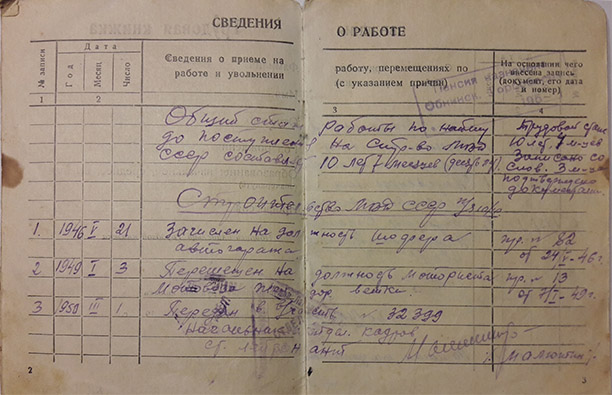 СВЕДЕНИЯ О РАБОТЕ
№ записи
Дата
Год
Месяц
Число
Сведения о приеме на работу, перемещениях по
работе и увольнении (с указанием причин)
На основании чего
внесена запись
(документ, его дата
и номер)
1 2 3 4
Общий стаж работы по найму
до поступления на Стр-во МВД
СССР составляет 10 лет 7 месяцев
Трудовой стаж
10 лет 4 м-цев
Записано со
слов. 3 м-ца
подтверждено
документами
Строительство МВД СССР п/я
1. 1946 V 21 Зачислен на должность шофера
автогаража
пр. № 82
от 24/V-46 г.
2 1949 I 3 Перемещен на должность моториста
мотовоза жел. дор. ветки.
пр. № 13
от 7/I-49 г.
3 1950 III 1. Передан в в/часть № 32399
Начальник отдел. кадров
ст. лейтенант /Малютин/
2
3